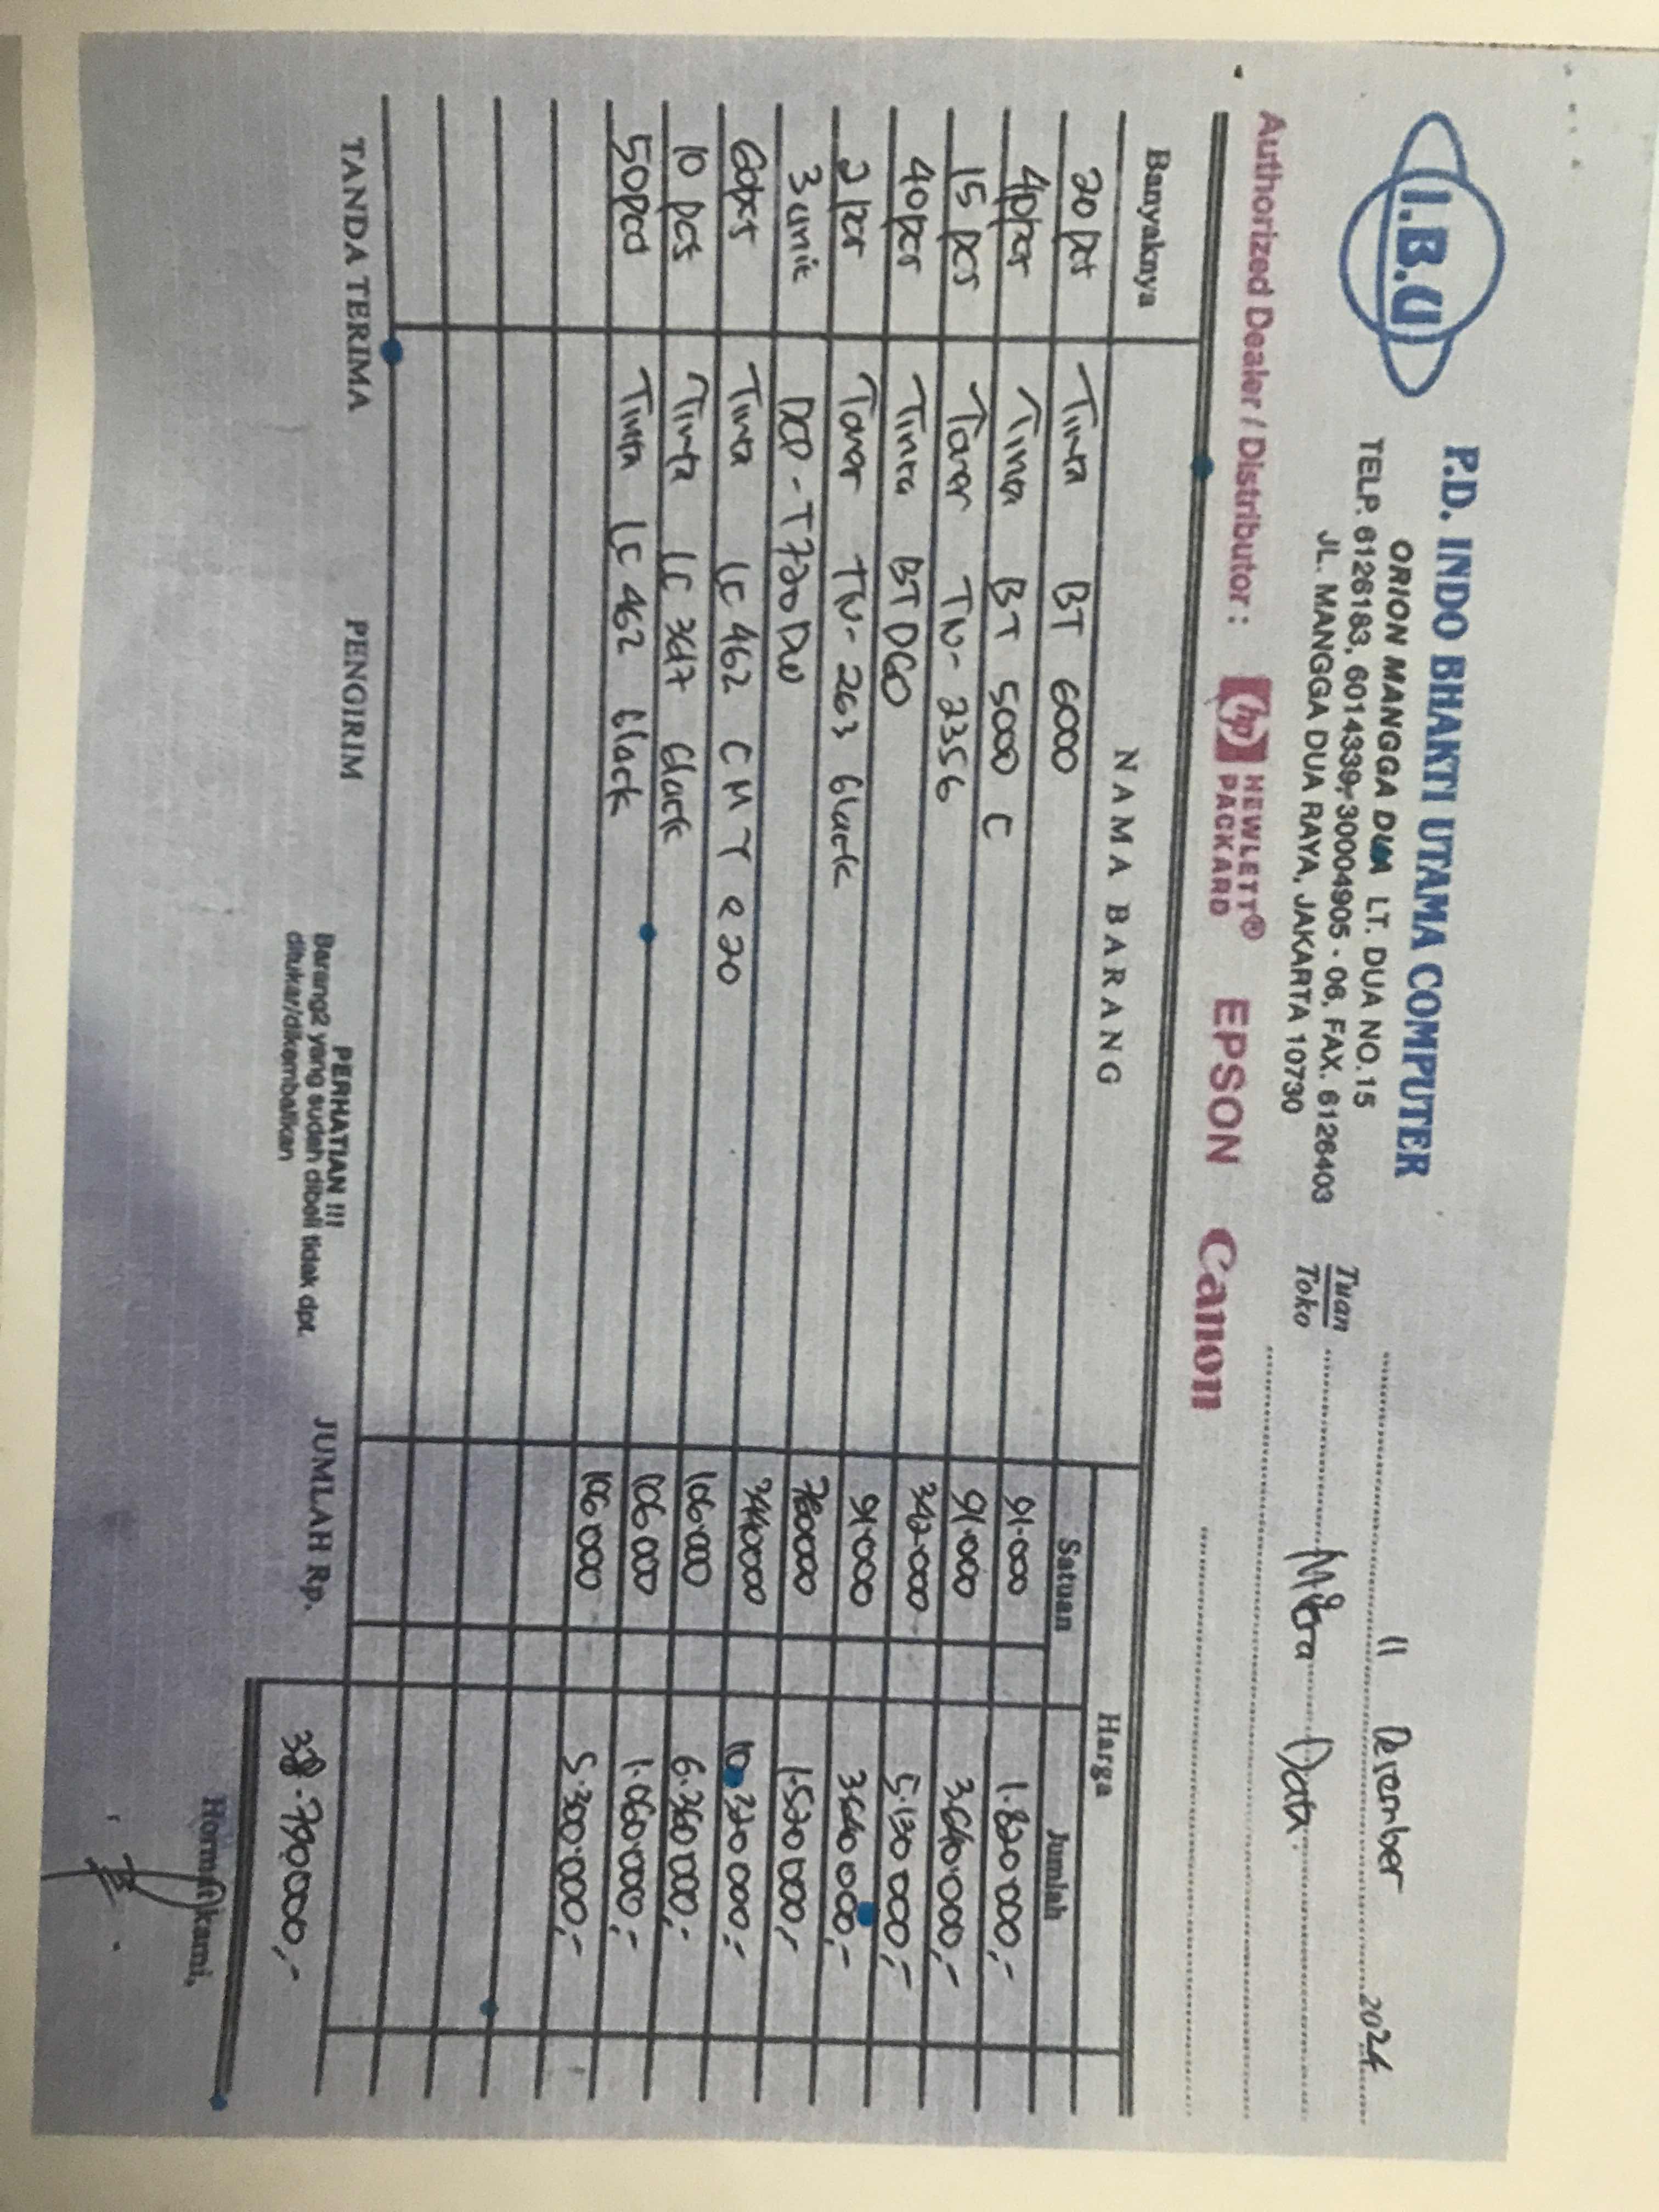 I.B.U
P.D. INDO BHAKTI UTAMA COMPUTER
ORION MANGGA DUA LT. DUA NO.15
TELP. 6126183, 6014339, 30004905 - 06, FAX. 6126403
JL. MANGGA DUA RAYA, JAKARTA 10730
11 December 2024
Tuan
Toko
Mitra Data
Authorized Dealer / Distributor : hp HEWLETT® PACKARD EPSON Canon
Banyaknya NAMA BARANG Harga
Satuan Jumlah
20 pcs Tinta BT 6000 91.000 1.820.000,-
40pcs Tinta BT 5000 C 91.000 3.640.000,-
15 pcs Toner TN-2356 342.000 5.130.000,-
40pcs Tinta BT D60 91.000 3.640.000,-
2 pcs Toner TN-263 black 760000 1.520.000,-
3 unit DCP-T720DW 3440000 10.320.000,-
60pcs Tinta LC 462 C M Y @ 20 106.000 6.360.000,-
10 pcs Tinta LC 3617 black 106.000 1.060.000,-
50pcs Tinta LC 462 black 106.000 5.300.000,-
TANDA TERIMA PENGIRIM JUMLAH Rp. 38.790.000,-
PERHATIAN !!!
Barang2 yang sudah dibeli tidak dpt.
ditukar/dikembalikan
Hormat kami,